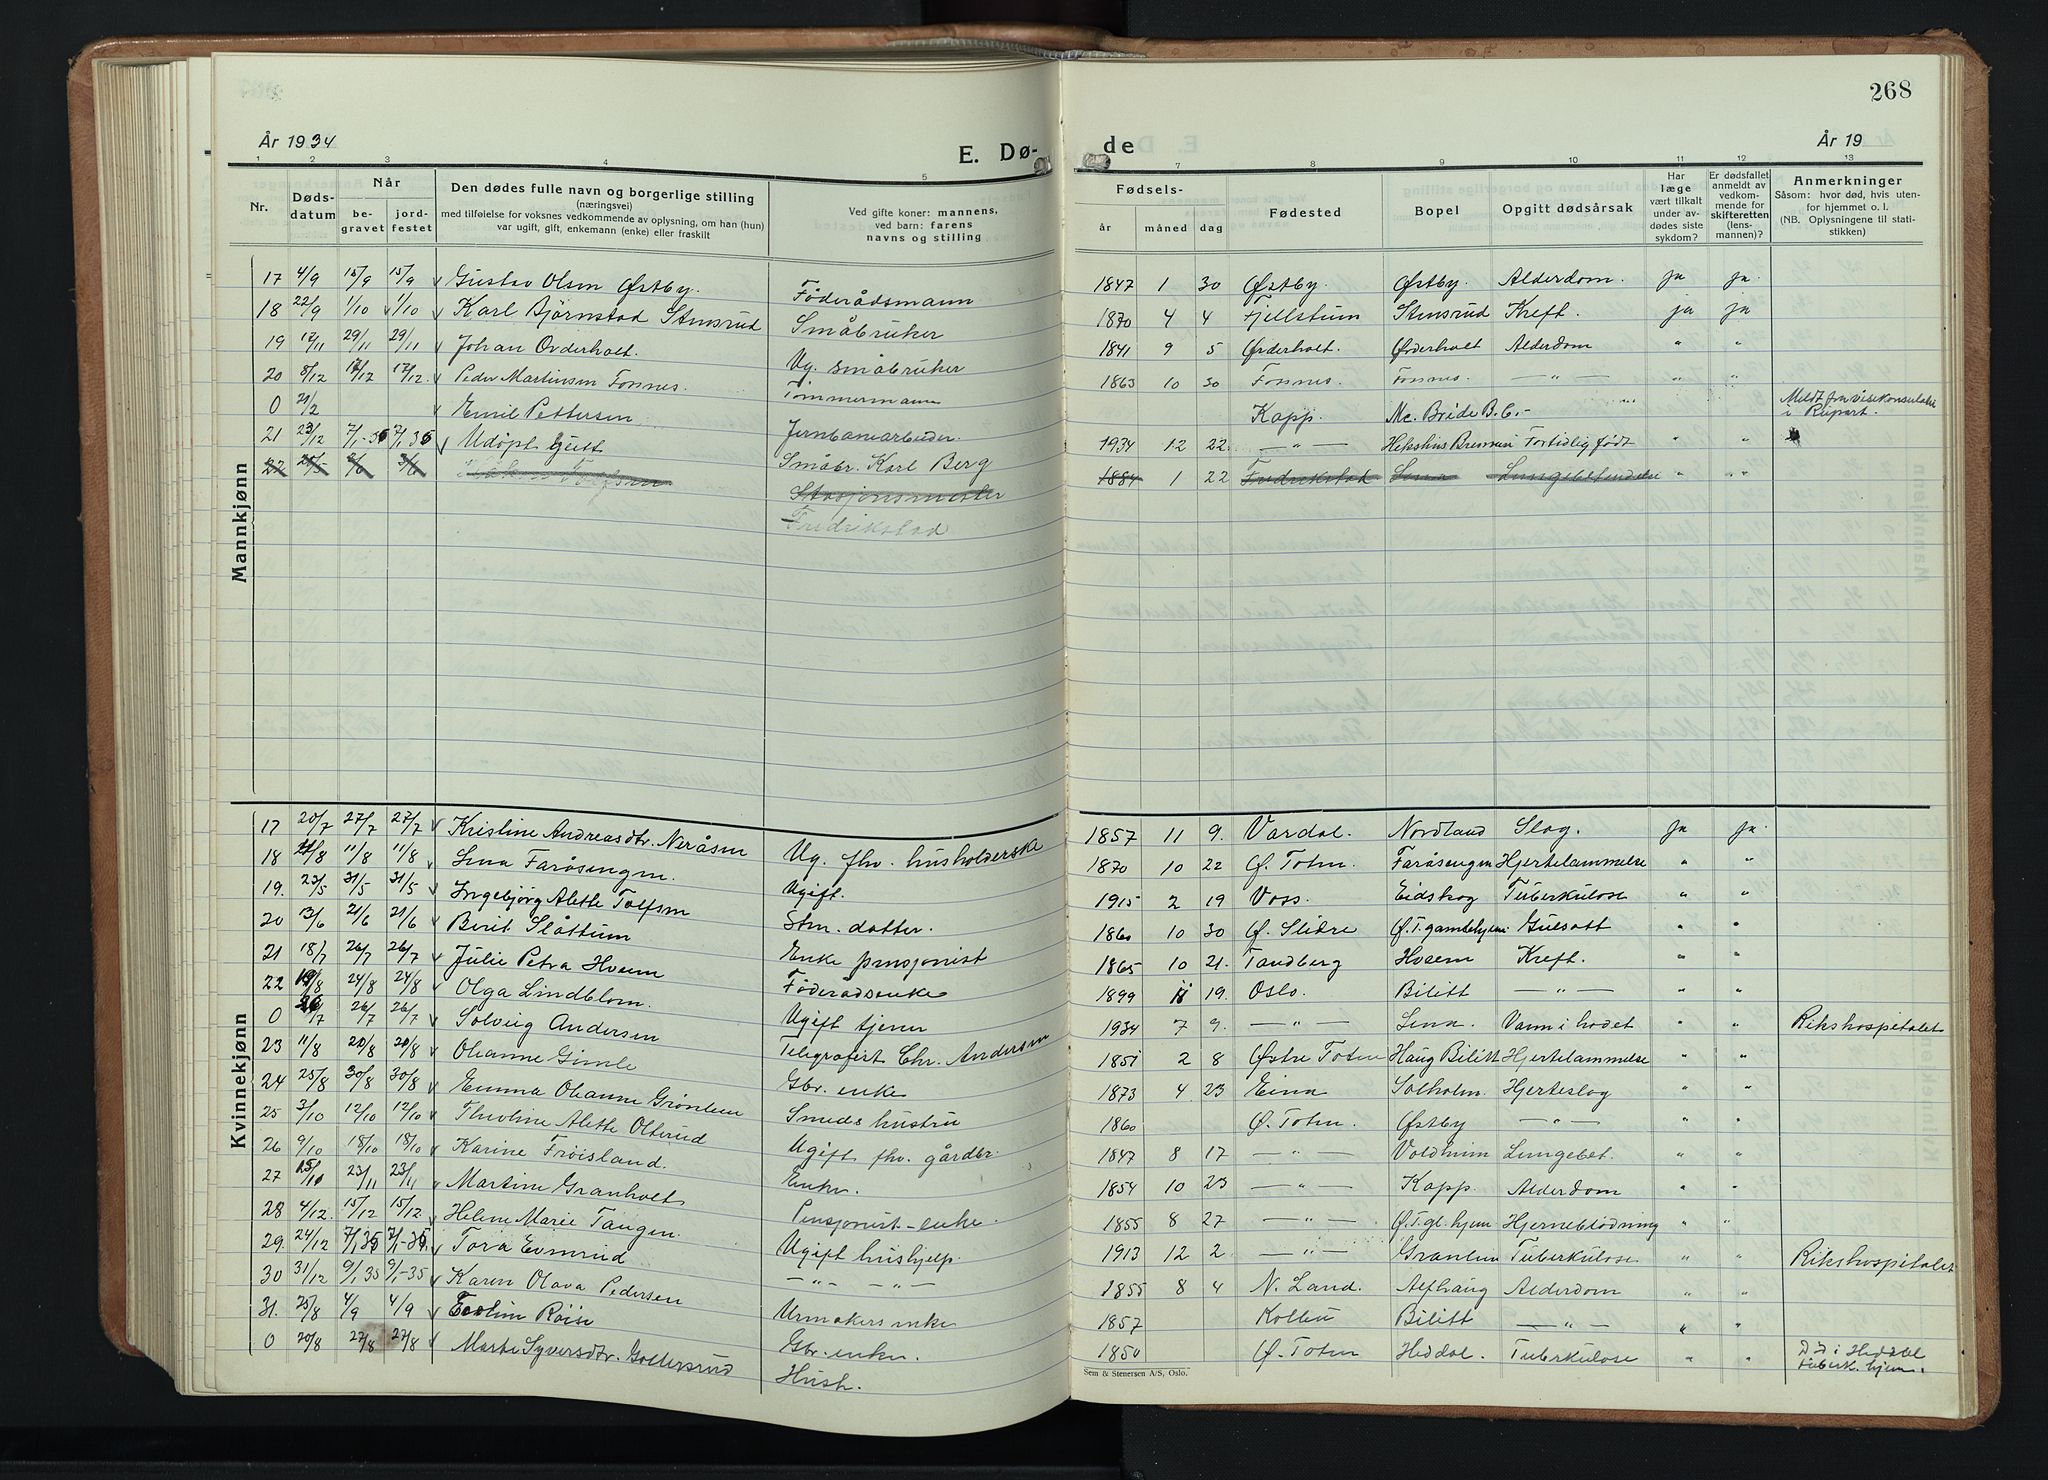 268
År 1934 E. Dø- de År 19
1 2 3 4 5 7 8 9 10 11 12 13
Nr. Døds-datum Når be-gravet jord-festet Den dødes fulle navn og borgerlige stilling (næringsvei) med tilføielse for voksnes vedkommende av oplysning, om han (hun) var ugift, gift, enkemann (enke) eller fraskilt Ved gifte koner: mannens, ved barn: farens navns og stilling Fødsels- år måned dag Fødested Bopel Opgitt dødsårsak Har læge vært tilkalt under av-dødes siste sykdom? Er dødsfallet anmeldt av vedkom-mende for skifteretten (lens-mannen)? Anmerkninger Såsom: hvor død, hvis uten-for hjemmet o. l. (NB. Oplysningene til stati-stikken)
Mannkjønn
17 4/9 15/9 15/9 Gustav Olsen Østby. Føderådsmann 1847 1 30 Østby. Østby. Alderdom. ja ja.
18 22/9 1/10 1/10 Karl Bjørnstad Stensrud Småbruker 1870 4 4 Fjellstuen Stensrud Kreft. ja ja
19 12/11 29/11 29/11 Johan Ovderholt. Ug. småbruker 1841 9 5 Øvderholt. Øvderholt Alderdom " "
20 8/12 17/12 17/12. Peder Martinsen Fonnes. Tømmermann 1863 10 30 Fonnes. Fonnes. — " — " "
0 21/2 Emil Pettersen Jernbanearbeider. Kapp. Mc. Bride B.C.- Meldt fra visekonsulatet i Rupert.
21 23/12 7/1-35 7/1 35 Udøpt gutt Småbr. Karl Berg 1934 12 22. — " — Hekshus Brenneri Fortidlig født " "
22 3/6 Tolfsen Stasjonsmester Fredrikstad 1884 1 22 Fredrikstad Lena Lungebetendelse " "
Kvinnekjønn
17 20/7 27/7 27/7 Kristine Andreasdtr. Neråsen Ug. fhv. husholderske 1857 11 9. Vardal. Nordland Slag. ja ja.
18 11/8 11/8 Lina Faråsengen. Ugift. 1870 10 22 Ø. Toten. Faråsengen Hjertelammelse " "
19. 23/5 31/5 31/5 Ingebjørg Alette Tolfsen Stm. datter. 1915 2 19 Voss. Eidskog Tuberkulose " "
20 13/6 21/6 21/6 Berit Slåttum Enke pensjonist 1860 10 30 Ø. Slidre Ø.T. gamlehjem Gulsott " "
21 18/7 26/7 26/7 Julie Petra Hveem Føderådsenke 1865 10 21. Tandberg Hveem Kreft. " "
22 19/8 24/8 24/8 Olga Lindblom. Ugift tjener 1899 11 19. Oslo. Bilitt — " — " "
0 26/7 26/7 26/7 Solveig Andersen Telegrafist Chr. Andersen 1934 7 9. — " — Lena. Vann i hodet " " Rikshospitalet
23 11/8 20/8 20/8 Oleanne Gimle Gbr. enke 1851 2 8 Østre Toten Haug Bilitt Hjertelammelse " "
24 25/8 30/8 30/8 Emma Oleanne Grønlien Smeds hustru 1873 4 23 Eina Solholm. Hjerteslag " "
25 3/10 12/10 12/10 Theoline Alette Olterud Ugift fhv. gårdbr. 1860 Ø. Toten. Østby — " — " "
26 9/10 18/10 18/10 Karine Frøisland. Enke. 1847 8 17 — " — Voldheim Lungebet. " "
27 15/11 23/11 23/11 Martine Granholt Pensjonist-enke. 1854 10 23 — " — Kapp. Alderdom " "
28 4/12. 15/12 15/12. Helene Marie Tangen. Ugift hushjelp. 1855 8 27 — " — Ø.T. gl. hjem Hjerneblødning " "
29. 24/12 7/1 35 7/1-35. Tora Evenrud — " — — " — 1913 12 2. — " — Granlien Tuberkulose " " Rikshospitalet
30 31/12 9/1 35 9/1-35 Karen Olava Pedersen Urmakers enke 1855 8 4 N. Land. Alfhaug Alderdom " "
31. 25/8 4/9 4/9 Evelin Røise Gbr. enke. 1857 Kolbu Bilitt — " — " "
0 20/8 27/8 27/8 Marte Syversdtr. Gollersrud Hush. 1850 Ø. Toten Heddal. Tuberkulose " " Død i Heddal tuberk. hjem.
Sem & Stenersen A/S, Oslo.